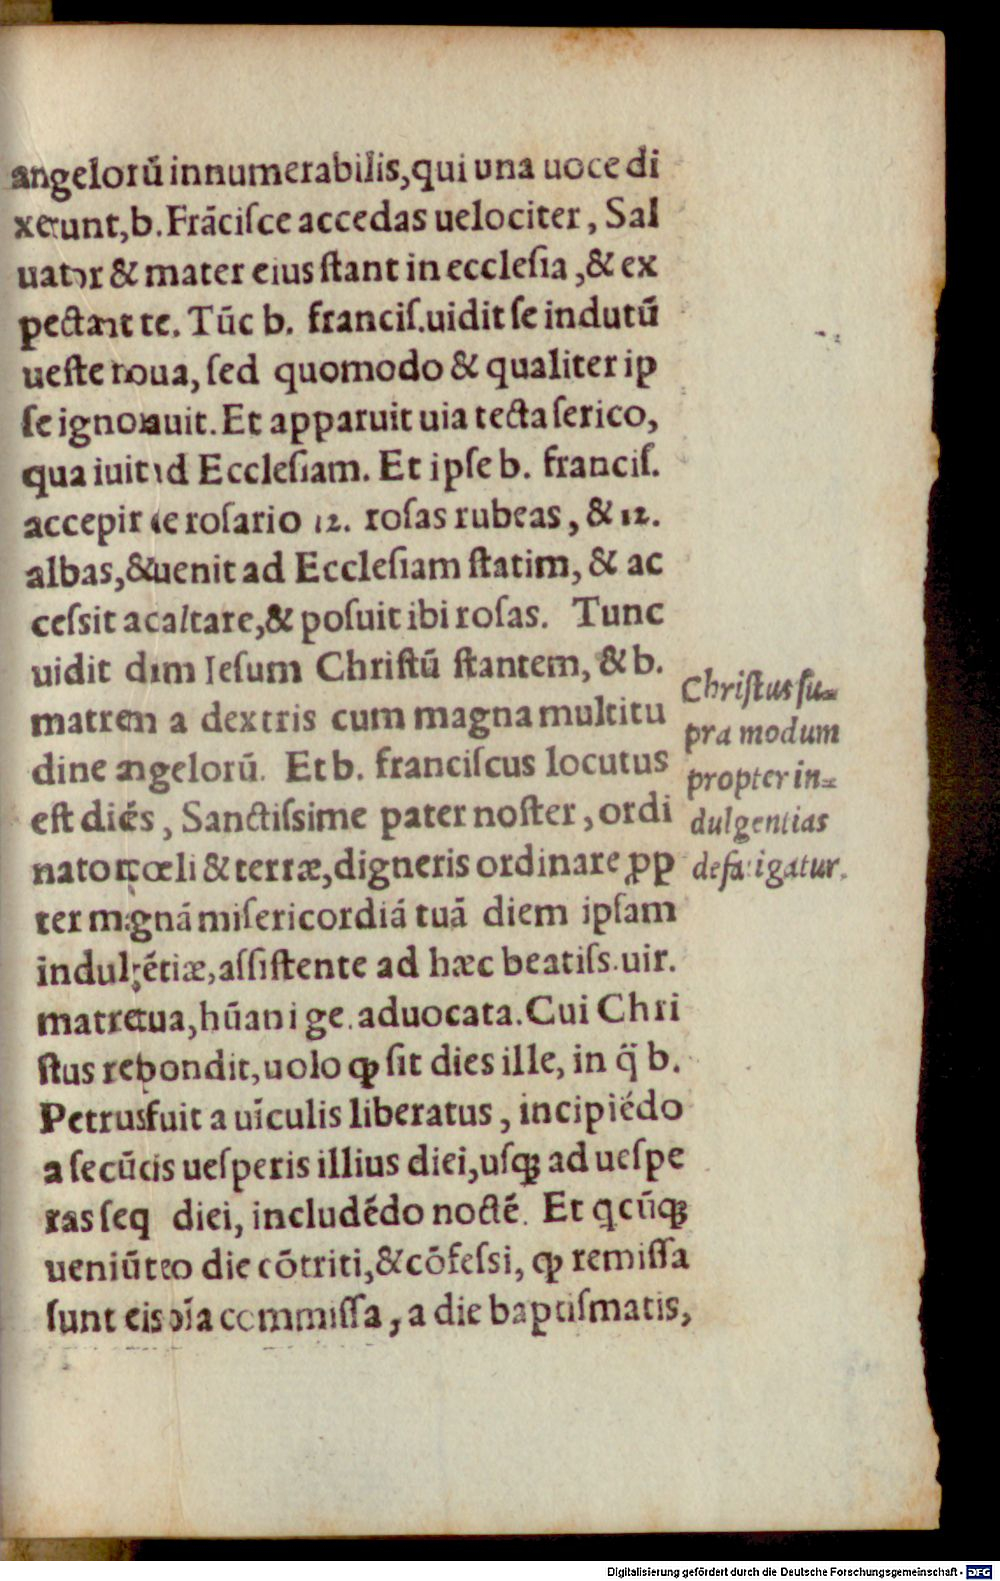 angelorū innumerabilis, qui una uoce di
xerunt, b. Frāciſce accedas uelociter, Sal
uator & mater eius ſtant in eccleſia, & ex
pectant te. Tūc b. franciſ. uidit ſe indutū
ueſte noua, ſed quomodo & qualiter ip
ſe ignorauit. Et apparuit uia tecta ſerico,
qua iuit ad Eccleſiam. Et ipſe b. franciſ.
accepit de roſario 12. roſas rubeas, & 12.
albas, & uenit ad Eccleſiam ſtatim, & ac
ceſsit ac altare, & poſuit ibi roſas. Tunc
uidit dīm Ieſum Chriſtū ſtantem, & b.
matrem a dextris cum magna multitu
dine angelorū. Et b. franciſcus locutus
eſt diēs, Sanctiſsime pater noſter, ordi
nator cœli & terræ, digneris ordinare ꝓp
ter magnā miſericordiā tuā diem ipſam
indulgētiæ, aſsiſtente ad hæc beatiſs. uir.
matre tua, hūani ge. aduocata. Cui Chri
ſtus reſpondit, uolo ꝙ ſit dies ille, in q̄ b.
Petrus fuit a uīculis liberatus, incipiēdo
a ſecūdis ueſperis illius diei, uſqꝫ ad ueſpe
ras ſeq diei, includēdo noctē. Et qcūqꝫ
ueniūt eo die cōtriti, & cōfeſsi, ꝙ remiſſa
ſunt eis oīa commiſſa, a die baptiſmatis,
Chriſtus ſu-
pra modum
propter in-
dulgentias
defatigatur.
Digitalisierung gefördert durch die Deutsche Forschungsgemeinschaft - DFG